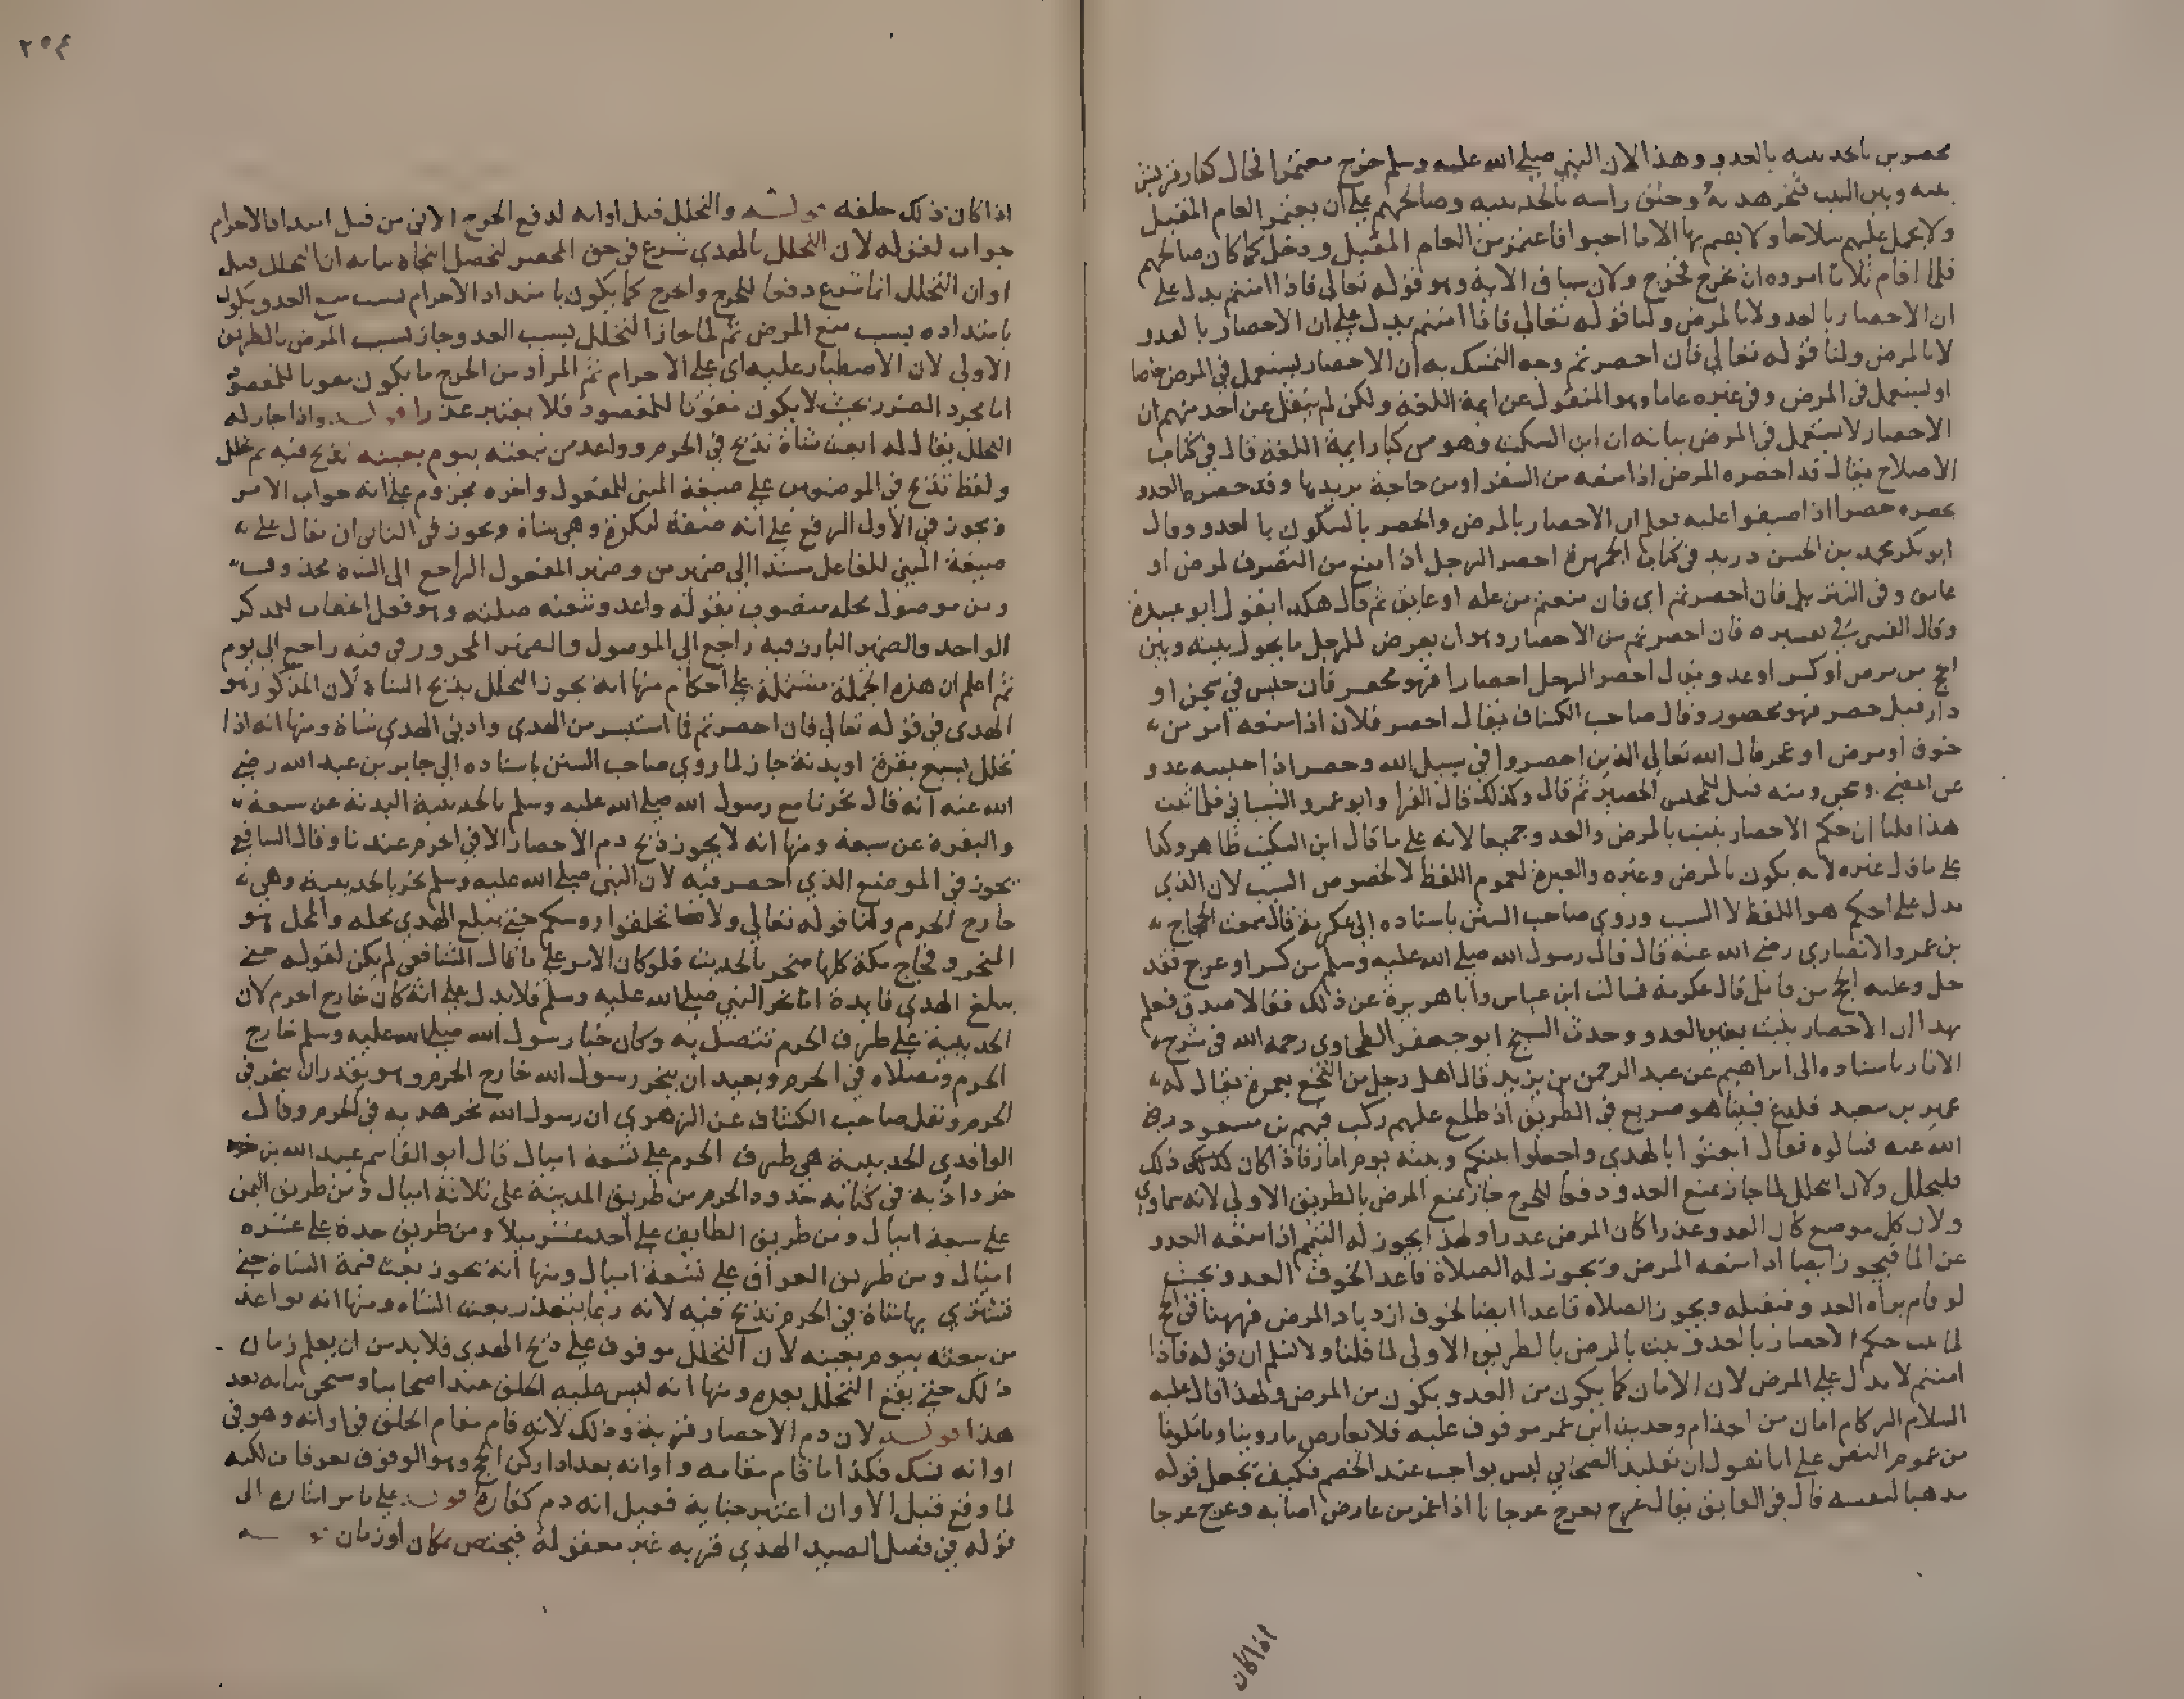 محصرين بالحديبية بالعدو وهذا لان النبي صلي الله عليه وسلم خرج معتمرا فحال كفار قريش
بينه وبين البيت فنحر هديه وحلق راسه بالحديبية وصالحهم علي ان يعتمر العام المقبل
ولا يحمل عليهم سلاحا ولا يقيم بها الا ما احبوا فاعتمر من العام المقبل ودخل كما كان صالحهم
فلما اقام ثلاثا امروه ان يخرج فخرج ولان سياق الاية وهو قوله تعالي فاذا امنتم يدل علي
ان الاحصار بالعدو لا بالمرض ولنا قوله تعالي فاذا امنتم يدل علي ان الاحصار بالعدو
لا بالمرض ولنا قوله تعالي فان احصرتم وجه التمسك به ان الاحصار يستعمل في المرض خاصا
او يستعمل في المرض وفي غيره عاما وهو المنقول عن ايمة اللغة ولكن لم ينقل عن احد منهم ان
الاحصار لا يستعمل في المرض بيانه ان ابن السكيت وهو من كبار ايمة اللغة قال في كتاب
الاصلاح يقال قد احصره المرض اذا منعه من السفر او من حاجة يريدها وقد حصره العدو
يحصره حصرا اذا ضيقوا عليه فعلم ان الاحصار بالمرض والحصر بالسكون بالعدو وقال
ابو بكر محمد بن الحسن دريد في كتاب الجمهرة احصر الرجل اذا منع من التصرف لمرض او
عايق وفي التنزيل فان احصرتم اي فان منعتم من علة او عايق ثم قال هكذا يقول ابو عبيدة
وقال القتبي في تفسيره فان احصرتم من الاحصار وهو ان يعرض للرجل ما يحول بينه وبين
الحج من مرض او كسر او عدو يقال احصر الرجل احصارا فهو محصر فان حبس في سجن او
دار قيل حصر فهو محصور وقال صاحب الكشاف يقال احصر فلان اذا منعه امر من
خوف او مرض او عجز قال الله تعالي الذين احصروا في سبيل الله وحصر اذا حبسه عدو
عن المضي وسجن ومنه قيل للمحبس الحصير ثم قال وكذلك قال الفرا وابو عمرو الشيباني فلما ثبت
هذا قلنا ان حكم الاحصار يثبت بالمرض والعدو جميعا لانه علي ما قال ابن السكيت ظاهر وكذا
علي ما قال غيره لانه يكون بالمرض وغيره والعبرة لعموم اللفظ لا لخصوص السبب لان الذي
يدل علي الحكم هو اللفظ لا السبب وروي صاحب السنن باسناده الي عكرمة قال سمعت الحجاج
بن عمرو الانصاري رضي الله عنه قال قال رسول الله صلي الله عليه وسلم من كسر او عرج فقد
حل وعليه الحج من قابل قال عكرمة فسالت ابن عباس وابا هريرة عن ذلك فقالا صدق فعلم
بهذا ان الاحصار يثبت بغير العدو وحدث الشيخ ابو جعفر الطحاوي رحمه الله في شرح
الاثار باسناده الي ابراهيم عن عبد الرحمن بن يزيد قال اهل رجل من النخع بعمرة يقال له
عمير بن سعيد فلدغ فبينا هو صريع في الطريق اذ طلع عليهم ركب فيهم بن مسعود رضي
الله عنه فسالوه فقال ابعثوا بالهدي واجعلوا بينكم وبينه يوم اماز فاذا كان ذلك
فليحلل ولان التحلل لما جاز بمنع العدو دفعا للحرج جاز بمنع المرض بالطريق الاولي لانه سماوي
ولان كل موضع كان العدو عذرا كان المرض عذرا ولهذا يجوز له التيمم اذا منعه العدو
عن الما فيجوز ايضا اذا منعه المرض ويجوز له الصلاة قاعدا لخوف العدو بحيث
لو قام يراه العدو فيقتله ويجوز الصلاة قاعدا ايضا لخوف ازدياد المرض فههنا في الحج
لما ثبت حكم الاحصار بالعدو يثبت بالمرض بالطريق الاولي لما قلنا ولا نسلم ان قوله فاذا
امنتم لا يدل علي المرض لان الامان كما يكون من العدو يكون من المرض ولهذا قال عليه
السلام الزكام امان من الجذام وحديث ابن عمر موقوف عليه فلا يعارض ما روينا وما تلونا
من عموم النص علي انا نقول ان تقليد الصحابي ليس بواجب عند الخصم فكيف يجعل قوله
مذهبا لنفسه قال في الفايق يقال عرج يعرج عرجانا اذا غمز من عارض اصابه وعرج عرجا
اذا كان
٢٥٤
اذا كان ذلك خلقه قوله والتحلل قبل اوانه لدفع الحرج الاتي من قبل امتداد الاحرام
جواب لقوله لان التحلل بالهدي شرع في حق المحصر لتحصل النجاة بيانه ان التحلل قبل
اوان التحلل انما شرع دفعا للحرج والحرج كما يكون بامتداد الاحرام بسبب منع العدو يكون
بامتداده بسبب منع المرض ثم لما جاز التحلل بسبب العدو جاز بسبب المرض بالطريق
الاولي لان الاصطبار عليه اي علي الاحرام ثم المراد من الحرج ما يكون مفوتا للمقصود
اما مجرد الضرر بحيث لا يكون مفوتا للمقصود فلا يعتبر عذرا قوله واذا جاز له
التحلل يقال له ابعث شاة تذبح في الحرم وواعد من تبعثه بيوم بعينه تذبح فيه ثم تحلل
ولفظ تذبح في الموضعين علي صيغة المبني للمفعول واخره مجزوم علي انه جواب الامر
ويجوز في الاول الرفع علي انه صفة لنكرة وهي شاة ويجوز في الثاني ان يقال علي
صيغة المبني للفاعل مسندا الي ضمير من وضمير المفعول الراجع الي الشاة محذوف
ومن موصول محله منصوب بقوله واعد وتبعثه صلته وهو فعل الخطاب للمذكر
الواحد والضمير البارز فيه راجع الي الموصول والضمير المجرور في فيه راجع الي يوم
ثم اعلم ان هذه الجملة مشتملة علي احكام منها انه يجوز التحلل بذبح الشاة لان المذكور هو
الهدي في قوله تعالي فان احصرتم فما استيسر من الهدي وادني الهدي شاة ومنها انه اذا
تحلل بسبع بقرة او بدنة جاز لما روي صاحب السنن باسناده الي جابر بن عبد الله رضي
الله عنه انه قال نحرنا مع رسول الله صلي الله عليه وسلم بالحديبية البدنة عن سبعة
والبقرة عن سبعة ومنها انه لا يجوز ذبح دم الاحصار الا في الحرم عندنا وقال الشافعي
يجوز في الموضع الذي احصر فيه لان النبي صلي الله عليه وسلم نحر بالحديبية وهي
خارج الحرم ولنا قوله تعالي ولا تحلقوا روسكم حتي يبلغ الهدي محله والمحل هو
المنحر وفجاج مكة كلها منحر بالحديث فلو كان الامر علي ما قال الشافعي لم يكن لقوله حتي
يبلغ الهدي فايدة اما نحر النبي صلي الله عليه وسلم فلا يدل علي انه كان خارج الحرم لان
الحديبية علي طرف الحرم تتصل به وكان خبا رسول الله صلي الله عليه وسلم خارج
الحرم ومصلاه في الحرم وبعيد ان ينحر رسول الله خارج الحرم وهو يقدر ان ينحر في
الحرم ونقل صاحب الكشاف عن الزهري ان رسول الله نحر هديه في الحرم وقال
الواقدي الحديبية هي طرف الحرم علي تسعة اميال قال ابو القاسم عبيد الله بن
خرداذبه في كتابه حدود الحرم من طريق المدينة علي ثلاثة اميال ومن طريق اليمن
علي سبعة اميال ومن طريق الطايف علي احد عشر ميلا ومن طريق جدة علي عشرة
اميال ومن طريق العراق علي تسعة اميال ومنها انه يجوز بعث قيمة الشاة حتي
تشتري بها شاة في الحرم تذبح فيه لانه ربما يتعذر بعث الشاة ومنها انه يواعد
من يبعثه بيوم بعينه لان التحلل موقوف علي ذبح الهدي فلا بد من ان يعلم زمان
ذلك حتي يقع التحلل بعده ومنها انه ليس عليه الحلق عند اصحابنا وسيجي بيانه بعد
هذا قوله لان دم الاحصار قربة وذلك لانه قام مقام الحلق في اوانه وهو في
اوانه نسك فكذا ما قام مقامه واوانه بعد ادا ركن الحج وهو الوقوف بعرفات لكنه
لما وقع قبل الاوان اعتبر جناية فقيل انه دم كفارة قوله علي ما مر اشارة الي
قوله في فصل الصيد الهدي قربة غير معقولة فيختص بمكان او زمان قوله